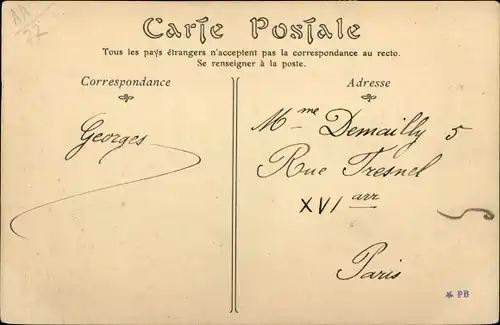 AA
72
Carte Postale
Tous les pays étrangers n'acceptent pas la correspondance au recto.
Se renseigner à la poste.
Correspondance
Adresse
Georges
Mme Demailly 5
Rue Fresnel
XVI arr
Paris
PB